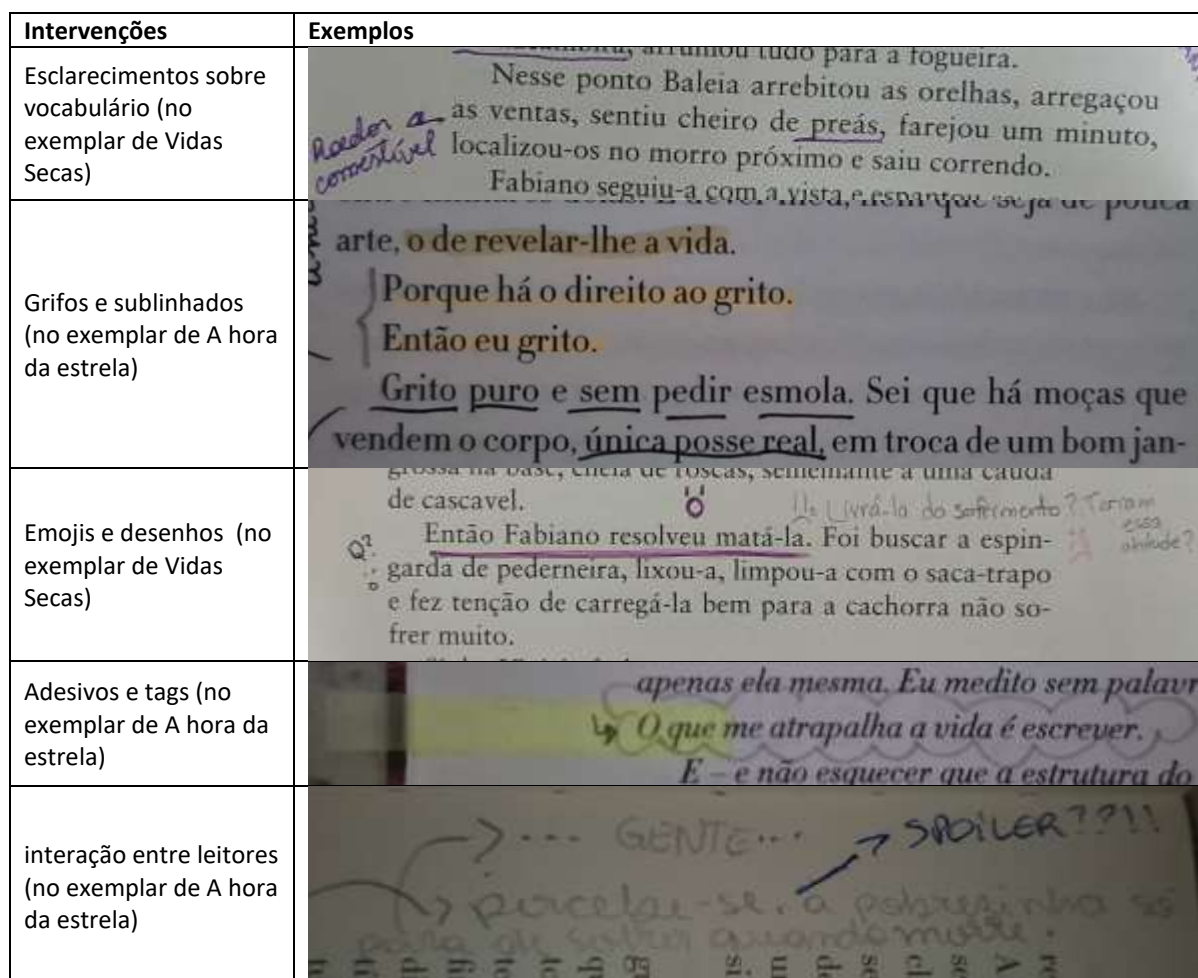 Intervenções
Exemplos
Esclarecimentos sobre
vocabulário (no
exemplar de Vidas
Secas)
arrumou tudo para a fogueira.
Nesse ponto Baleia arrebitou as orelhas, arregaçou
as ventas, sentiu cheiro de preás, farejou um minuto,
localizou-os no morro próximo e saiu correndo.
Fabiano seguiu-a com a vista e espantou
Roedor
comestível
Grifos e sublinhados
(no exemplar de A hora
da estrela)
que seja de pouca
arte, o de revelar-lhe a vida.
Porque há o direito ao grito.
Então eu grito.
Grito puro e sem pedir esmola. Sei que há moças que
vendem o corpo, única posse real, em troca de um bom jan-
Emojis e desenhos (no
exemplar de Vidas
Secas)
grossa na base, cheia de roscas, semelhante a uma cauda
de cascavel.
Livrá-la do sofrimento? Teriam
essa
atitude?
Então Fabiano resolveu matá-la. Foi buscar a espin-
garda de pederneira, lixou-a, limpou-a com o saca-trapo
e fez tenção de carregá-la bem para a cachorra não so-
frer muito.
Adesivos e tags (no
exemplar de A hora da
estrela)
apenas ela mesma. Eu medito sem palavr
O que me atrapalha a vida é escrever.
E – e não esquecer que a estrutura do
interação entre leitores
(no exemplar de A hora
da estrela)
... GENTE...
SPOILER??!!
percebe-se, a pobrezinha só
para de sofrer quando morre.